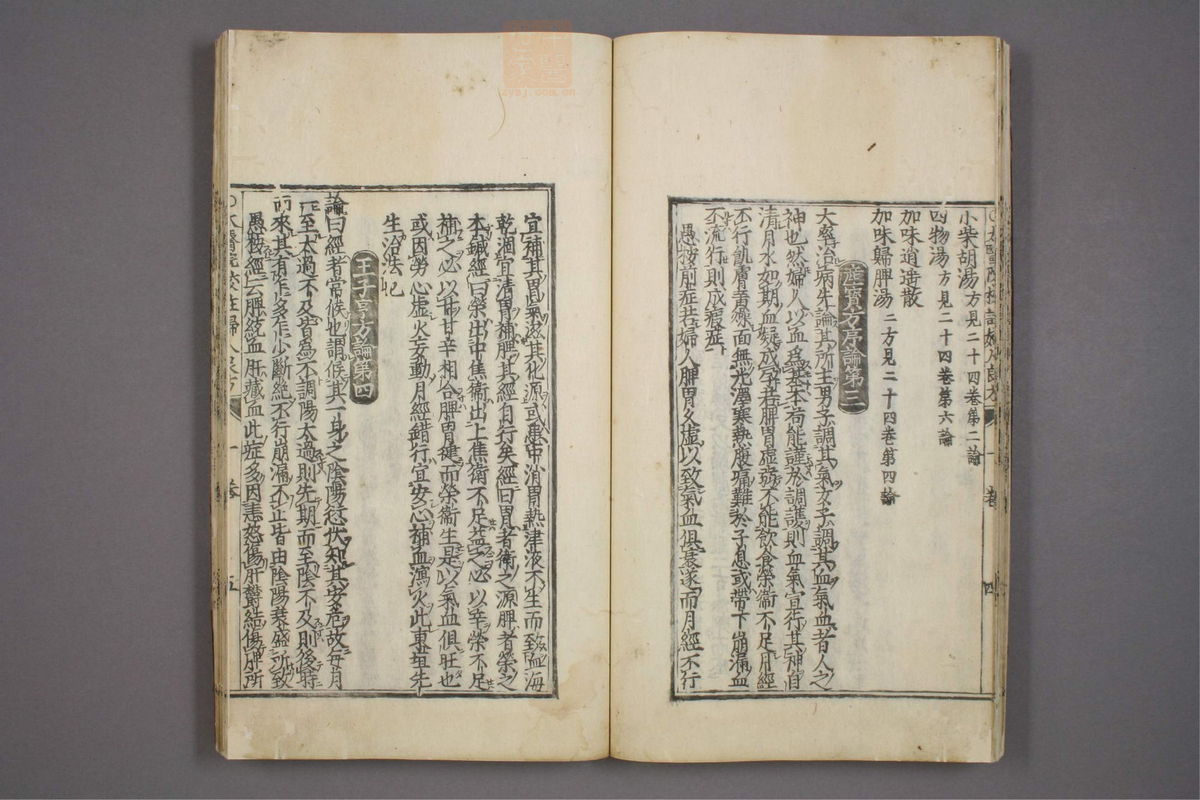 小柴胡湯方見二十四卷第二論
四物湯方見二十四卷第六論
加味逍遥散
加味歸脾湯二方見二十四卷第四論
産寶方序論第三
大率治病先論其所主男子調其氣女子調其血氣血者人之
神也然婦人以血爲基本苟能謹於調護則血氣宣行其神自
清月水如期血凝成孕若脾胃虚弱不能飲食榮衛不足月經
不行肌膚黄燥面無光澤寒熱腹痛難於子息或帶下崩漏血
不流行則成瘕症
愚按前症若婦人脾胃久虚以致氣血俱衰遂而月經不行
宜補其胃氣滋其化源或患中消胃熱津液不生而致血海
乾涸宜清胃補脾其經自行矣經曰胃者衛之源脾者榮之
本鍼經曰榮出中焦衛出上焦衛不足益之必以辛榮不足
補之必以甘甘辛相合脾胃健而榮衛生是以氣血俱旺也
或因勞心虚火妄動月經錯行宜安心補血瀉火此東垣先
生治法也
王子亨方論第四
論曰經者常候也謂候其一身之陰陽愆伏知其安危故毎月
一至太過不及皆爲不調陽太過則先期而至陰不及則後時
而來其有乍多乍少斷絶不行崩漏不止皆由陰陽衰盛所致
愚按經云脾統血肝藏血此症多因恚怒傷肝鬱結傷脾所
〇太醫院校註婦人良方 一卷 五